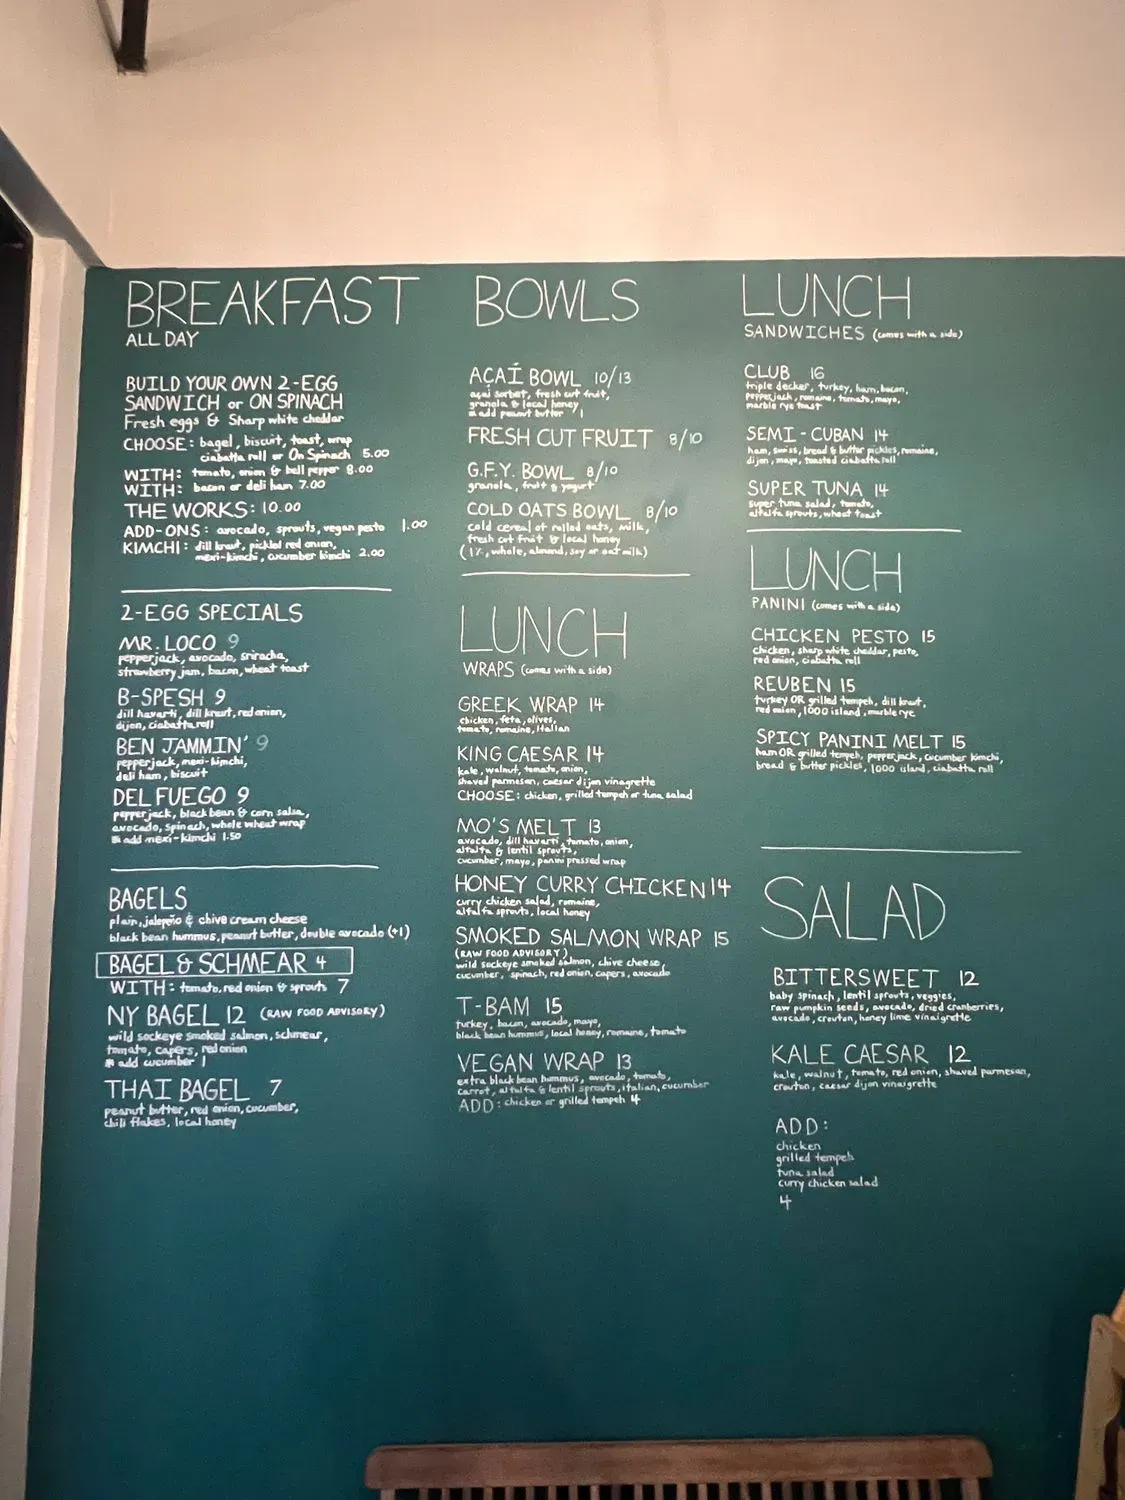 BREAKFAST
ALL DAY
BUILD YOUR OWN 2-EGG
SANDWICH or ON SPINACH
Fresh eggs & Sharp white cheddar
CHOOSE: bagel, biscuit, toast, wrap
ciabatta roll or On Spinach 5.00
WITH: tomato, onion & bell pepper 8.00
WITH: bacon or deli ham 7.00
THE WORKS: 10.00
ADD-ONS: avocado, sprouts, vegan pesto 1.00
KIMCHI: dill kraut, pickled red onion,
mexi-kimchi, cucumber kimchi 2.00
2-EGG SPECIALS
MR. LOCO 9
pepperjack, avocado, sriracha,
strawberry jam, bacon, wheat toast
B-SPESH 9
dill havarti, dill kraut, red onion,
dijon, ciabatta roll
BEN JAMMIN' 9
pepperjack, mexi-kimchi,
deli ham, biscuit
DEL FUEGO 9
pepperjack, black bean & corn salsa,
avocado, spinach, whole wheat wrap
* add mexi-kimchi 1.50
BAGELS
plain, jalepeño & chive cream cheese
black bean hummus, peanut butter, double avocado (+1)
BAGEL & SCHMEAR 4
WITH: tomato, red onion & sprouts 7
NY BAGEL 12 (RAW FOOD ADVISORY)
wild sockeye smoked salmon, schmear,
tomato, capers, red onion
* add cucumber 1
THAI BAGEL 7
peanut butter, red onion, cucumber,
chili flakes, local honey
BOWLS
AÇAÍ BOWL 10/13
açaí sorbet, fresh cut fruit,
granola & local honey
* add peanut butter 1
FRESH CUT FRUIT 8/10
G.F.Y. BOWL 8/10
granola, fruit & yogurt
COLD OATS BOWL 8/10
cold cereal of rolled oats, milk,
fresh cut fruit & local honey
(1%, whole, almond, soy or oat milk)
LUNCH
WRAPS (comes with a side)
GREEK WRAP 14
chicken, feta, olives,
tomato, romaine, italian
KING CAESAR 14
kale, walnut, tomato, onion,
shaved parmesan, caesar dijon vinagrette
CHOOSE: chicken, grilled tempeh or tuna salad
MO'S MELT 13
avocado, dill havarti, tomato, onion,
alfalfa & lentil sprouts,
cucumber, mayo, panini pressed wrap
HONEY CURRY CHICKEN 14
curry chicken salad, romaine,
alfalfa sprouts, local honey
SMOKED SALMON WRAP 15
(RAW FOOD ADVISORY)
wild sockeye smoked salmon, chive cheese,
cucumber, spinach, red onion, capers, avocado
T-BAM 15
turkey, bacon, avocado, mayo,
black bean hummus, local honey, romaine, tomato
VEGAN WRAP 13
extra black bean hummus, avocado, tomato,
carrot, alfalfa & lentil sprouts, italian, cucumber
ADD: chicken or grilled tempeh 4
LUNCH
SANDWICHES (comes with a side)
CLUB 16
triple decker, turkey, ham, bacon,
pepperjack, romaine, tomato, mayo,
marble rye toast
SEMI-CUBAN 14
ham, swiss, bread & butter pickles, romaine,
dijon, mayo, toasted ciabatta roll
SUPER TUNA 14
super tuna salad, tomato,
alfalfa sprouts, wheat toast
LUNCH
PANINI (comes with a side)
CHICKEN PESTO 15
chicken, sharp white cheddar, pesto,
red onion, ciabatta roll
REUBEN 15
turkey OR grilled tempeh, dill kraut,
red onion, 1000 island, marble rye
SPICY PANINI MELT 15
ham OR grilled tempeh, pepperjack, cucumber kimchi,
bread & butter pickles, 1000 island, ciabatta roll
SALAD
BITTERSWEET 12
baby spinach, lentil sprouts, veggies,
raw pumpkin seeds, avocado, dried cranberries,
avocado, crouton, honey lime vinaigrette
KALE CAESAR 12
kale, walnut, tomato, red onion, shaved parmesan,
crouton, caesar dijon vinaigrette
ADD:
chicken
grilled tempeh
tuna salad
curry chicken salad
4